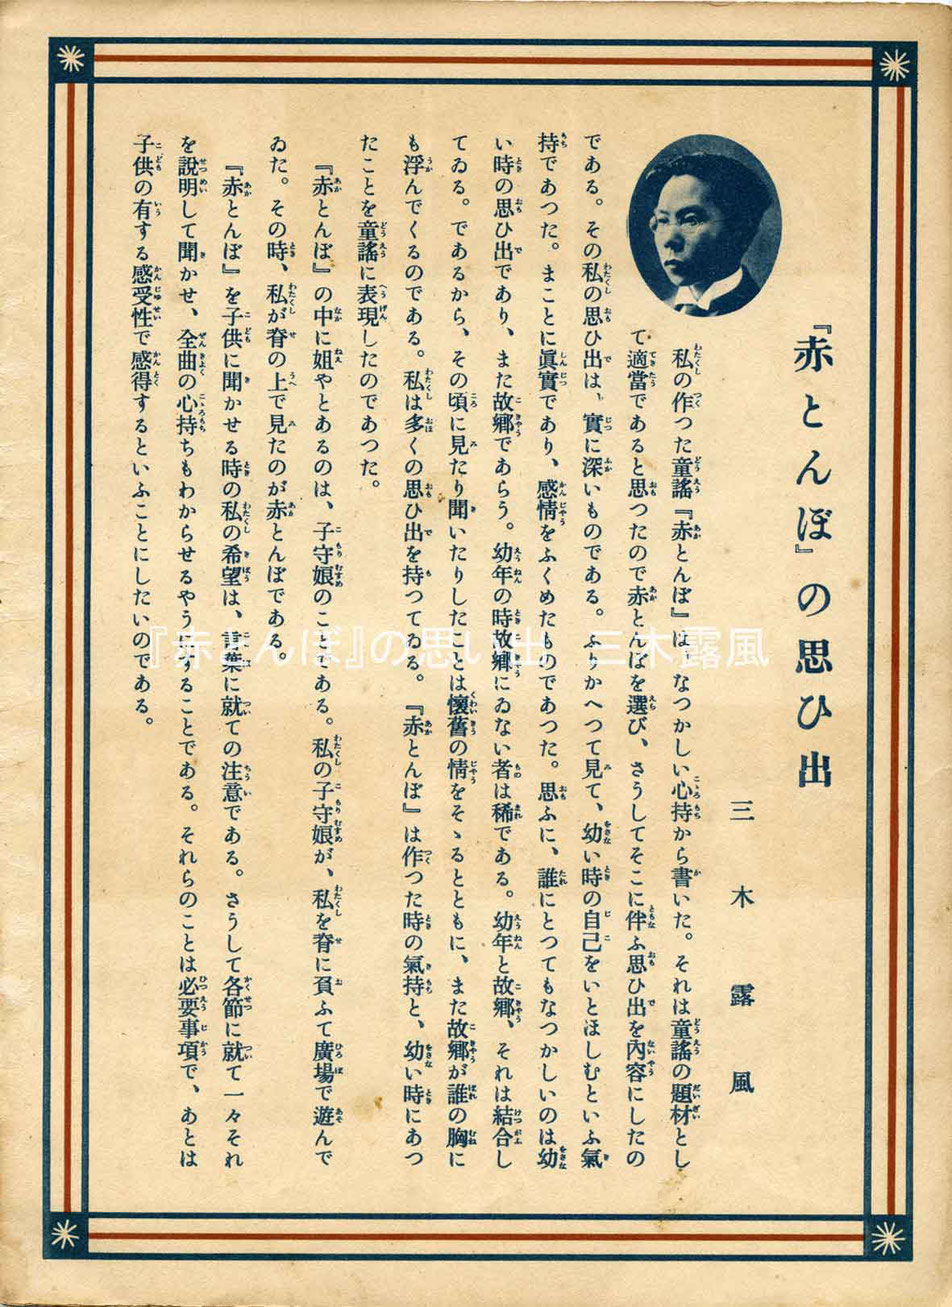 『赤とんぼ』の思ひ出
三木露風
私の作つた童謠『赤とんぼ』は、なつかしい心持から書いた。それは童謠の題材とし
て適當であると思つたので赤とんぼを選び、さうしてそこに伴ふ思ひ出を內容にしたの
である。その私の思ひ出は、實に深いものである。ふりかへつて見て、幼い時の自己をいとほしむといふ氣
持であつた。まことに眞實であり、感情をふくめたものであつた。思ふに、誰にとつてもなつかしいのは幼
い時の思ひ出であり、また故鄕であらう。幼年の時故鄕にゐない者は稀である。幼年と故鄕、それは結合し
てゐる。であるから、その頃に見たり聞いたりしたことは懷舊の情をそゝるとともに、また故鄕が誰の胸に
も浮んでくるのである。私は多くの思ひ出を持つてゐる。『赤とんぼ』は作つた時の氣持と、幼い時にあつ
たことを童謠に表現したのであつた。
『赤とんぼ』の中に姐やとあるのは、子守娘のことである。私の子守娘が、私を脊に負ふて廣場で遊んで
ゐた。その時、私が脊の上で見たのが赤とんぼである。
『赤とんぼ』を子供に聞かせる時の私の希望は、言葉に就ての注意である。さうして各節に就て一々それ
を說明して聞かせ、全曲の心持ちもわからせるやうにすることである。それらのことは必要事項で、あとは
子供の有する感受性で感得するといふことにしたいのである。
『赤とんぼ』の思い出 三木露風